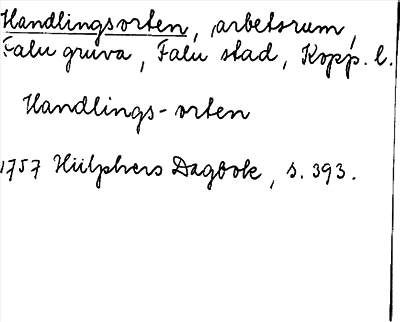 Handlingsorten, arbetsrum,
Falu gruva, Falu stad, Kopp. l.
Handlings-orten
1757 Hülphers Dagbok, s. 393.